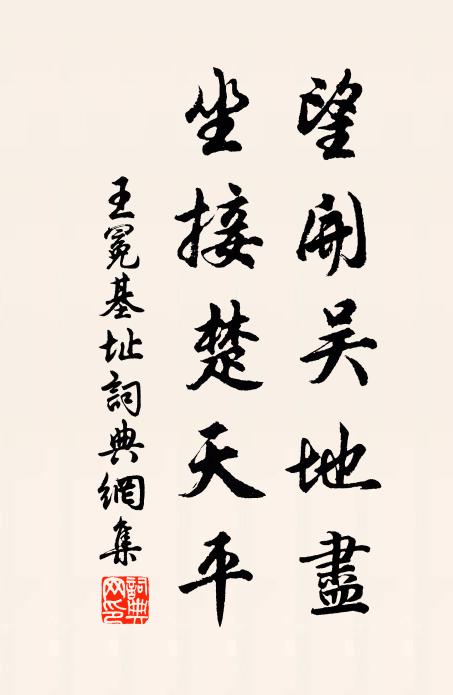 望開吳地盡
坐接楚天平
王冕基址詞典網集
詞典網印